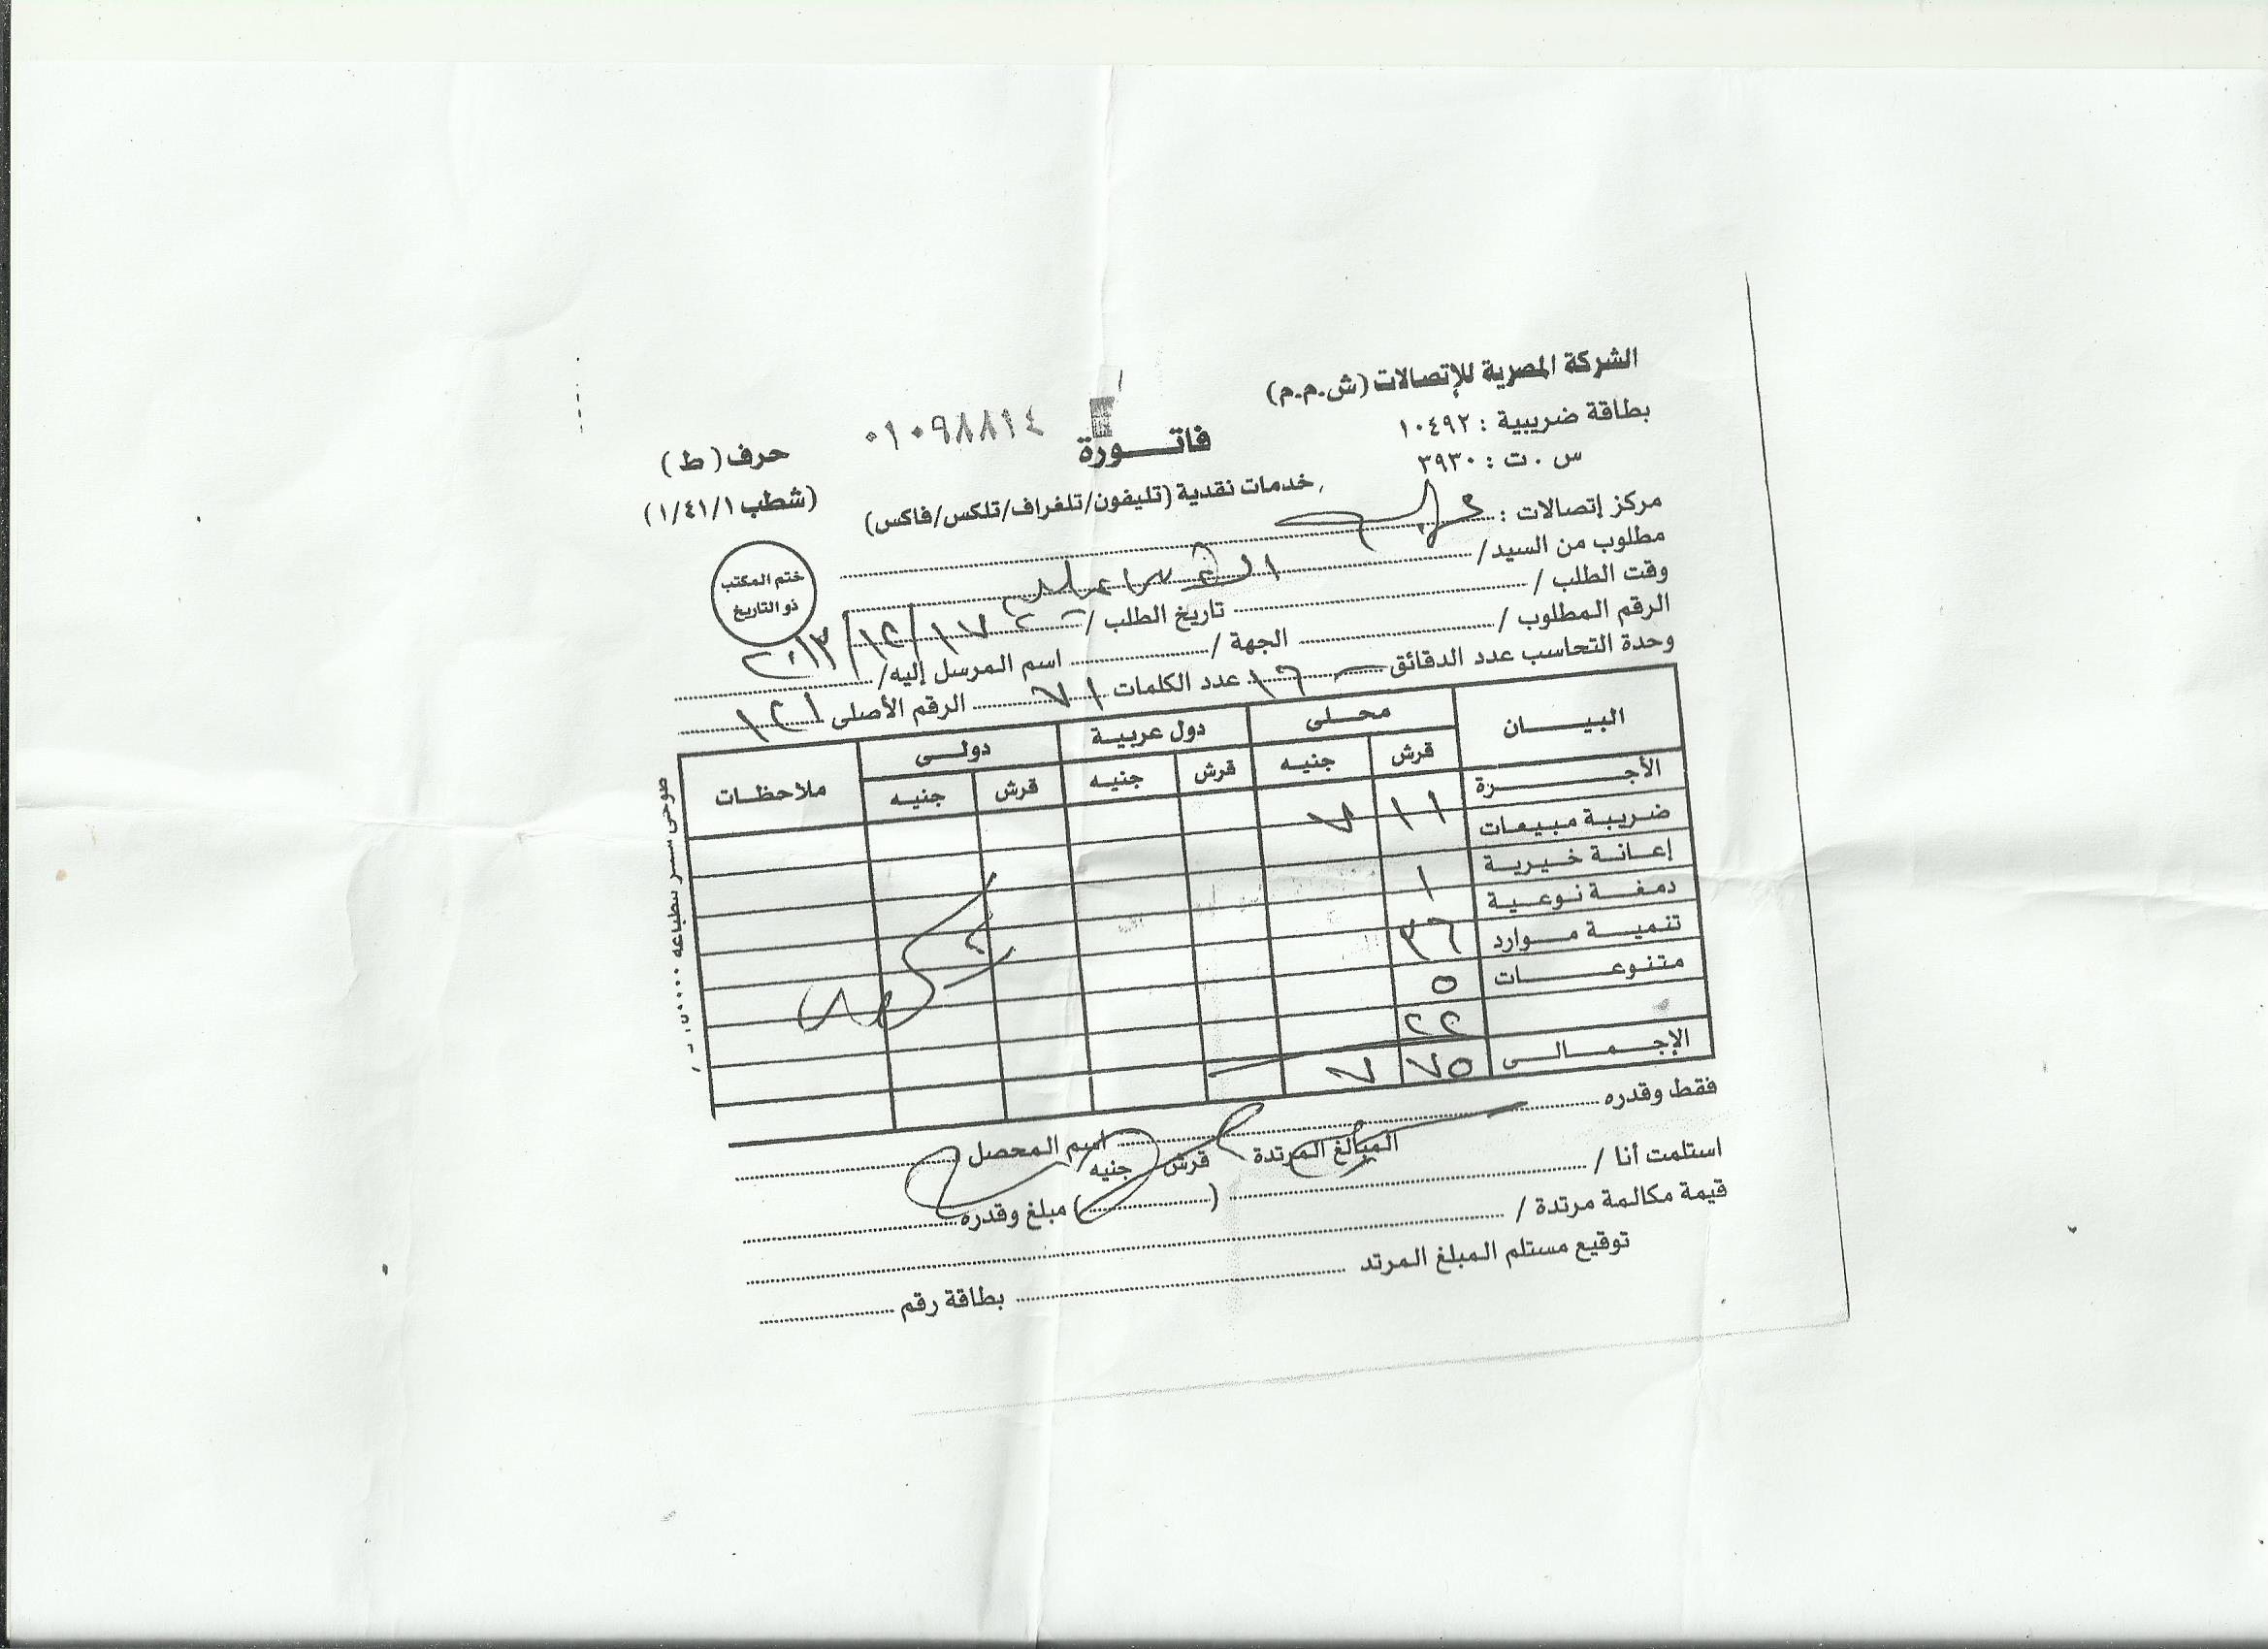 الشركة المصرية للإتصالات (ش.م.م)
بطاقة ضريبية : ١٠٤٩٢
س . ت : ٣٩٣٠
٠١٠٩٨٨١٤
فاتـــورة
خدمات نقدية (تليفون/تلغراف/تلكس/فاكس)
حرف ( ط )
(شطب ١/٤١/١)
مركز إتصالات :
مطلوب من السيد/
وقت الطلب / تاريخ الطلب / ١٧/١٢/٢٠١٣
الرقم المطلوب / الجهة / اسم المرسل إليه/
وحدة التحاسب عدد الدقائق ١٦ عدد الكلمات ٧١ الرقم الأصلى ١٢١
ختم المكتب
ذو التاريخ
البيـــان محــلى دول عربية دولــى ملاحظات
قرش جنيه قرش جنيه قرش جنيه
الأجـــرة ١١ ٧
ضريبة مبيعات
إعانة خيرية ١
دمغة نوعية ٣٦
تنمية موارد ٥
متنوعـــات ٢٢
الإجمـــالى ٧٥ ٧
فقط وقدره
اسم المحصل
المبالغ المرتدة قرش جنيه
استلمت أنا / ( ) مبلغ وقدره
قيمة مكالمة مرتدة /
توقيع مستلم المبلغ المرتد بطاقة رقم